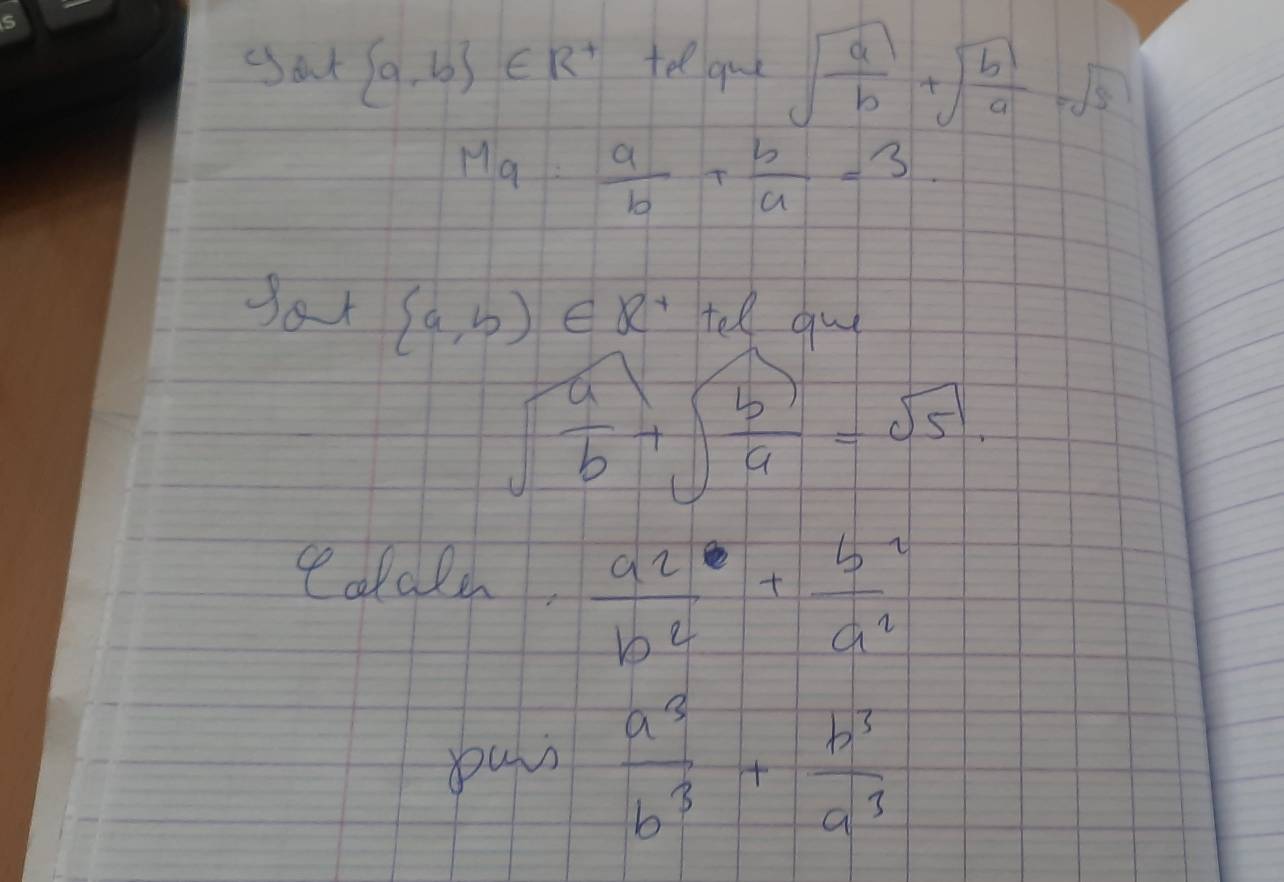 Soit {a, b} ∈ R⁺ tel que √(a/b) + √(b/a) = √5
Mq : a/b + b/a = 3.
Soit {a, b) ∈ R⁺ tel que
√(a/b) + √(b/a) = √5.
Calculer : a²/b² + b²/a²
puis a³/b³ + b³/a³